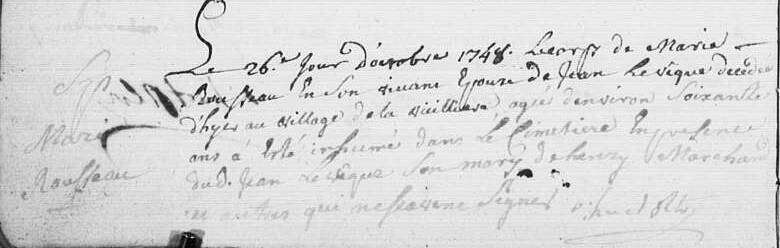 Sp.
Marie
Rousseau
Le 26.e Jour d'octobre 1748. Le corps de Marie
Rousseau En Son vivant Epouse de Jean Leveque decedée
d'hyer au village de la vieilliere agée denviron Soixante
ans à Esté inhumé dans Le Cimetiere En presence
dud. Jean Leveque Son mary de henry Marchand
et autres qui ne scavent Signer